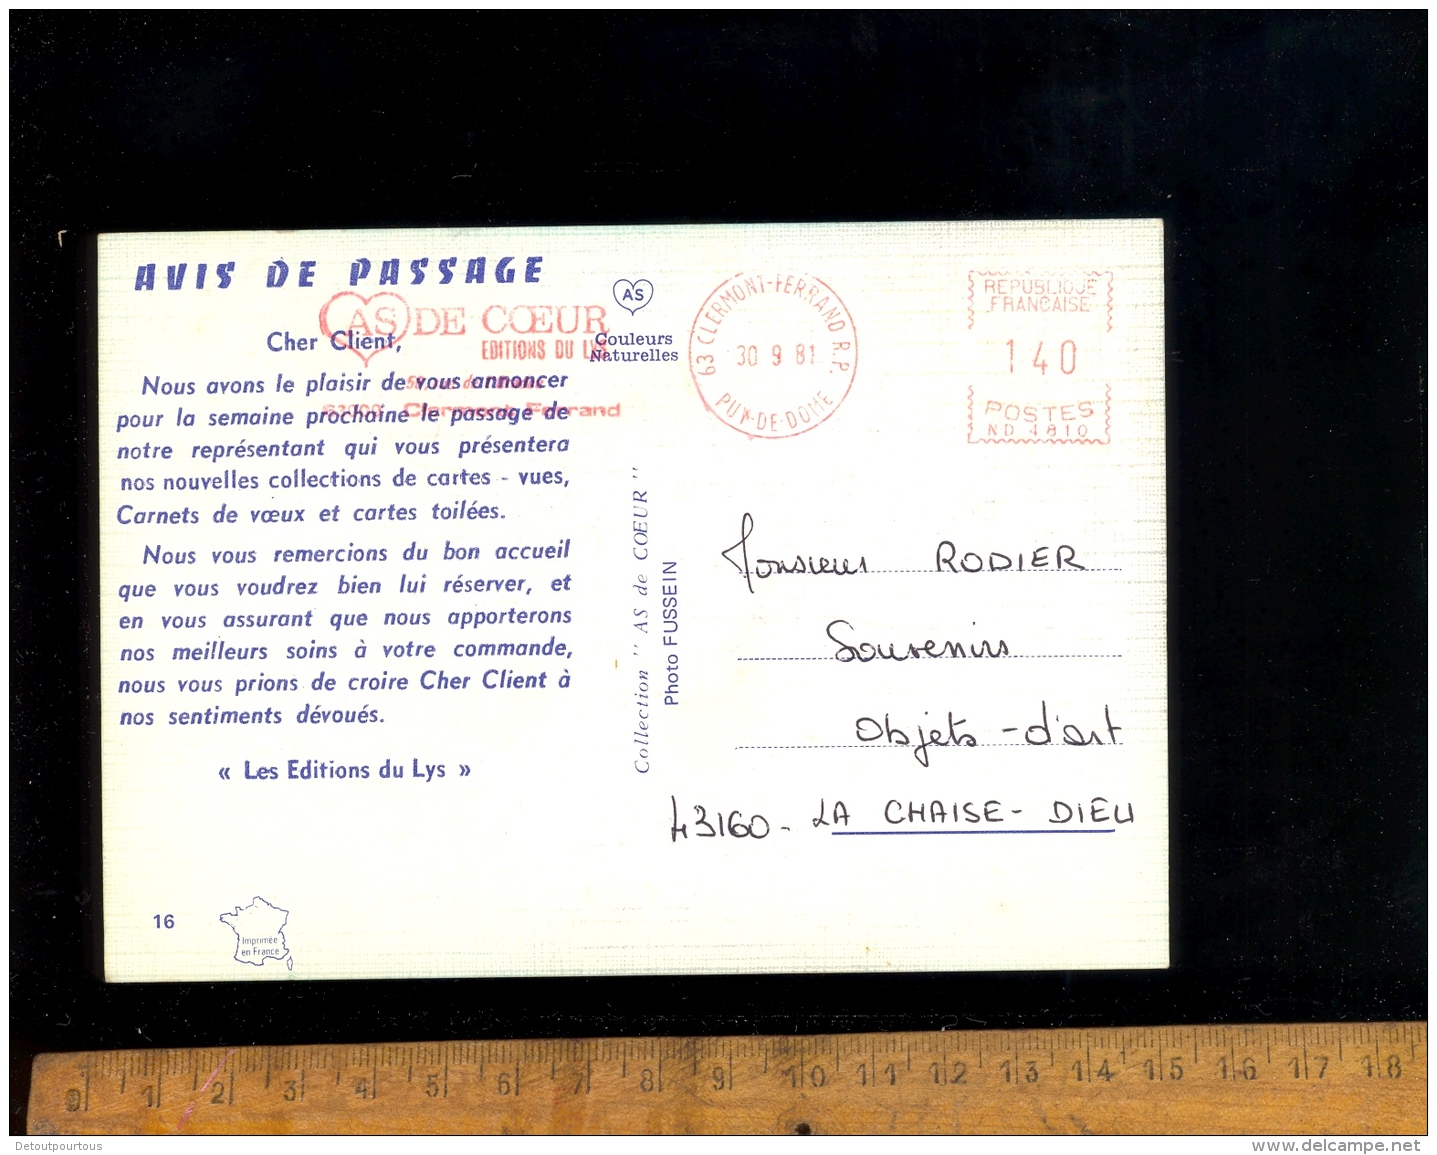 AVIS DE PASSAGE
AS DE CŒUR
EDITIONS DU LYS
63000 Clermont Ferrand
Cher Client,
Nous avons le plaisir de vous annoncer
pour la semaine prochaine le passage de
notre représentant qui vous présentera
nos nouvelles collections de cartes - vues,
Carnets de vœux et cartes toilées.
Nous vous remercions du bon accueil
que vous voudrez bien lui réserver, et
en vous assurant que nous apporterons
nos meilleurs soins à votre commande,
nous vous prions de croire Cher Client à
nos sentiments dévoués.
« Les Editions du Lys »
16
Imprimée
en France
AS
Couleurs
Naturelles
Collection " AS de CŒUR "
Photo FUSSEIN
63 CLERMONT-FERRAND R.P.
30 9 81
PUY-DE-DOME
REPUBLIQUE
FRANCAISE
140
POSTES
ND 4810
Monsieur RODIER
Souvenirs
Objets - d'art
43160 - LA CHAISE - DIEU
0 1 2 3 4 5 6 7 8 9 10 11 12 13 14 15 16 17 18
Detoutpourtous
www.delcampe.net